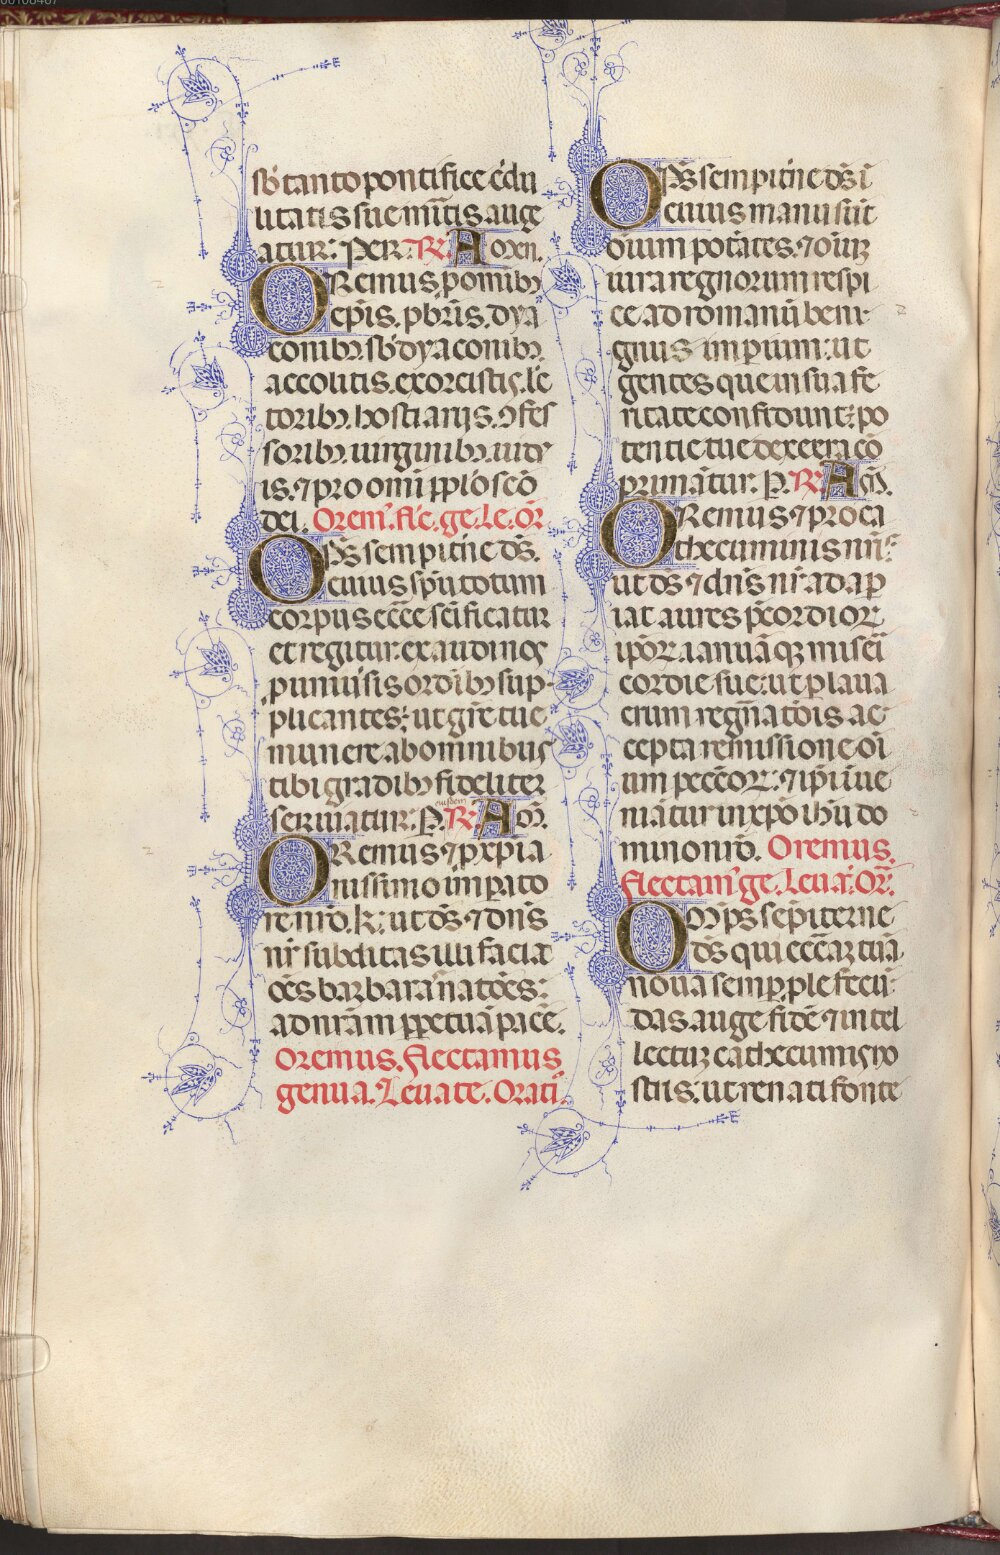 sb̄ tanto pontifice c̄du
litatis sue mītis auge
atur: PER: ℟. Amen.
OREmus, p omnibꝫ
epīs. pbrīs. dya
conibꝫ. sb̄dyaconibꝫ.
accolitis. exorcistis. lc̄
toribꝫ. hostiarijs. ꝯfes
soribꝫ. uirginibꝫ. uidu
is. ⁊ pro omī pplō scō
dei. Orem̄. fle. ge. Le. or̄.
OP̄s sempitn̄e ds̄.
cuius spū totum
corpus ecc̄e scīficatur
et regitur: exaudi nos
p uniūsis ordībꝫ sup
plicantes; ut gr̄e tue
munere ab omnibus
tibi gradibꝫ fideliter
seruiatur. P. ℟. Am̄.
eiusdem
OREmus ⁊ p xp̄ia
nissimo imp̄ato
re nrō. k: ut ds̄ ⁊ dn̄s
nr̄ subditas illi faciat
oēs barbaras natōes:
ad nr̄am ppetuā pacē.
Oremus. Flectamus
genua. Leuate. Orati
OP̄s sempitn̄e ds̄ ī
cuius manu sūt
oīum potātes. ⁊ oīuꝫ
iura regnorum respi
ce ad romanū beni
gnus imperium: ut
gentes que in sua fe
ritate confidunt; po
tentie tue dexeera cō
primātur. P. ℟. Am̄.
OREmus ⁊ pro ca
thecuminis nrīs
ut ds̄ ⁊ dn̄s nr̄ adap
iat aures p̄cordior
ip̄oꝝ. ianuāqꝫ miserī
cordie sue: ut p laua
crum regn̄atōis ac
cepta remissione oī
um pecc̄oꝝ. ⁊ ip̄i īue
niātur in xp̄o ih̄u do
mino nrō. Oremus.
Flectam̄ ge. Leuat: Or̄.
OMp̄s sep̄iterne
ds̄ qui ecc̄az tuā
noua semp ple fecū
das. auge fidē ⁊ intel
lectuꝫ cathecuminis nr̄o
stris: ut renati fonte